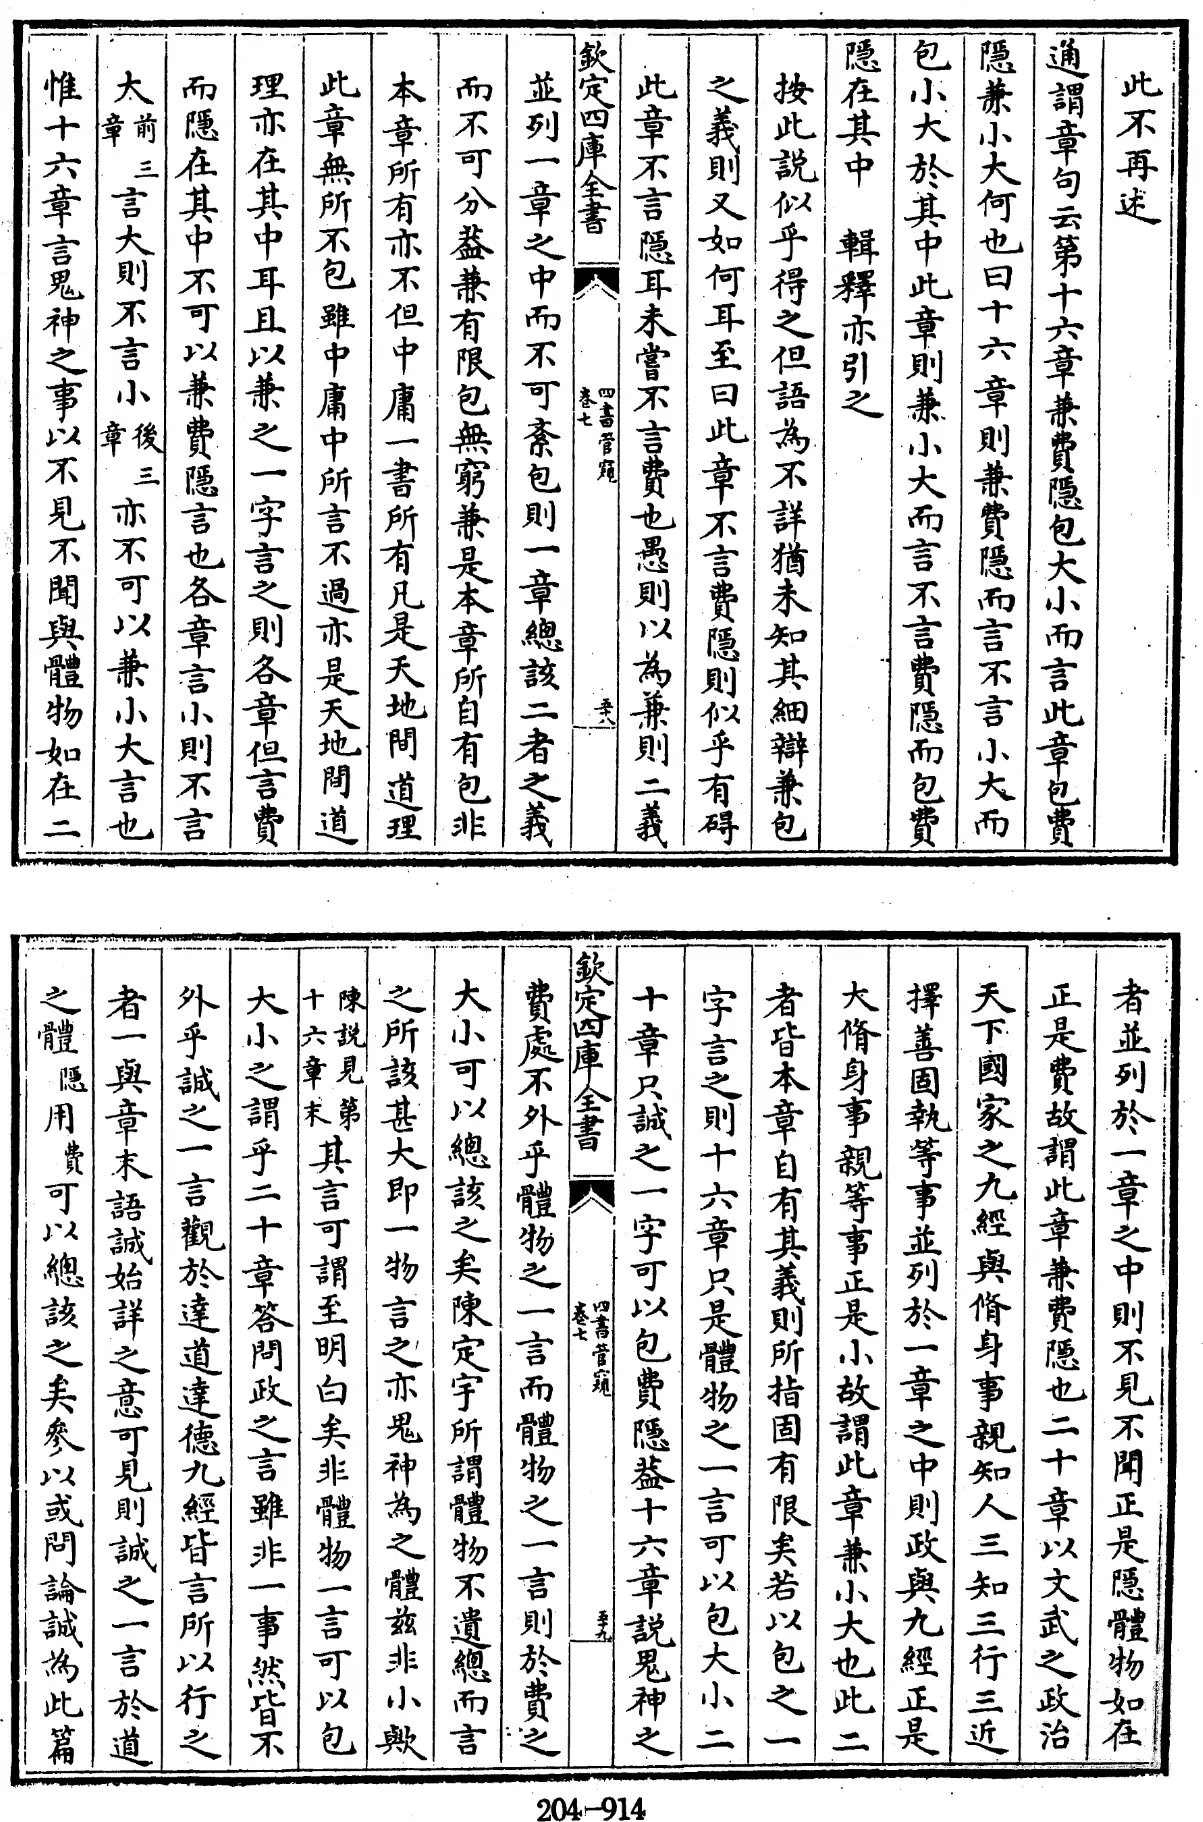 此不再述
通謂章句云第十六章兼費隱包大小而言此章包費
隱兼小大何也曰十六章則兼費隱而言不言小大而
包小大於其中此章則兼小大而言不言費隱而包費
隱在其中　輯釋亦引之
按此説似乎得之但語為不詳猶未知其細辯兼包
之義則又如何耳至曰此章不言費隱則似乎有碍
此章不言隱耳未嘗不言費也愚則以為兼則二義
欽定四庫全書
四書管窺
卷七
五十八
並列一章之中而不可紊包則一章總該二者之義
而不可分葢兼有限包無窮兼是本章所自有包非
本章所有亦不但中庸一書所有凡是天地間道理
此章無所不包雖中庸中所言不過亦是天地間道
理亦在其中耳且以兼之一字言之則各章但言費
而隱在其中不可以兼費隱言也各章言小則不言
大前三章言大則不言小後三章亦不可以兼小大言也
惟十六章言鬼神之事以不見不聞與體物如在二
者並列於一章之中則不見不聞正是隱體物如在
正是費故謂此章兼費隱也二十章以文武之政治
天下國家之九經與脩身事親知人三知三行三近
擇善固執等事並列於一章之中則政與九經正是
大脩身事親等事正是小故謂此章兼小大也此二
者皆本章自有其義則所指固有限矣若以包之一
字言之則十六章只是體物之一言可以包大小二
十章只誠之一字可以包費隱葢十六章説鬼神之
欽定四庫全書
四書管窺
卷七
五十九
費處不外乎體物之一言而體物之一言則於費之
大小可以總該之矣陳定宇所謂體物不遺總而言
之所該甚大即一物言之亦鬼神為之體兹非小歟
陳説見第十六章末其言可謂至明白矣非體物一言可以包
大小之謂乎二十章答問政之言雖非一事然皆不
外乎誠之一言觀於達道達德九經皆言所以行之
者一與章末語誠始詳之意可見則誠之一言於道
之體隱用費可以總該之矣參以或問論誠為此篇
204-914